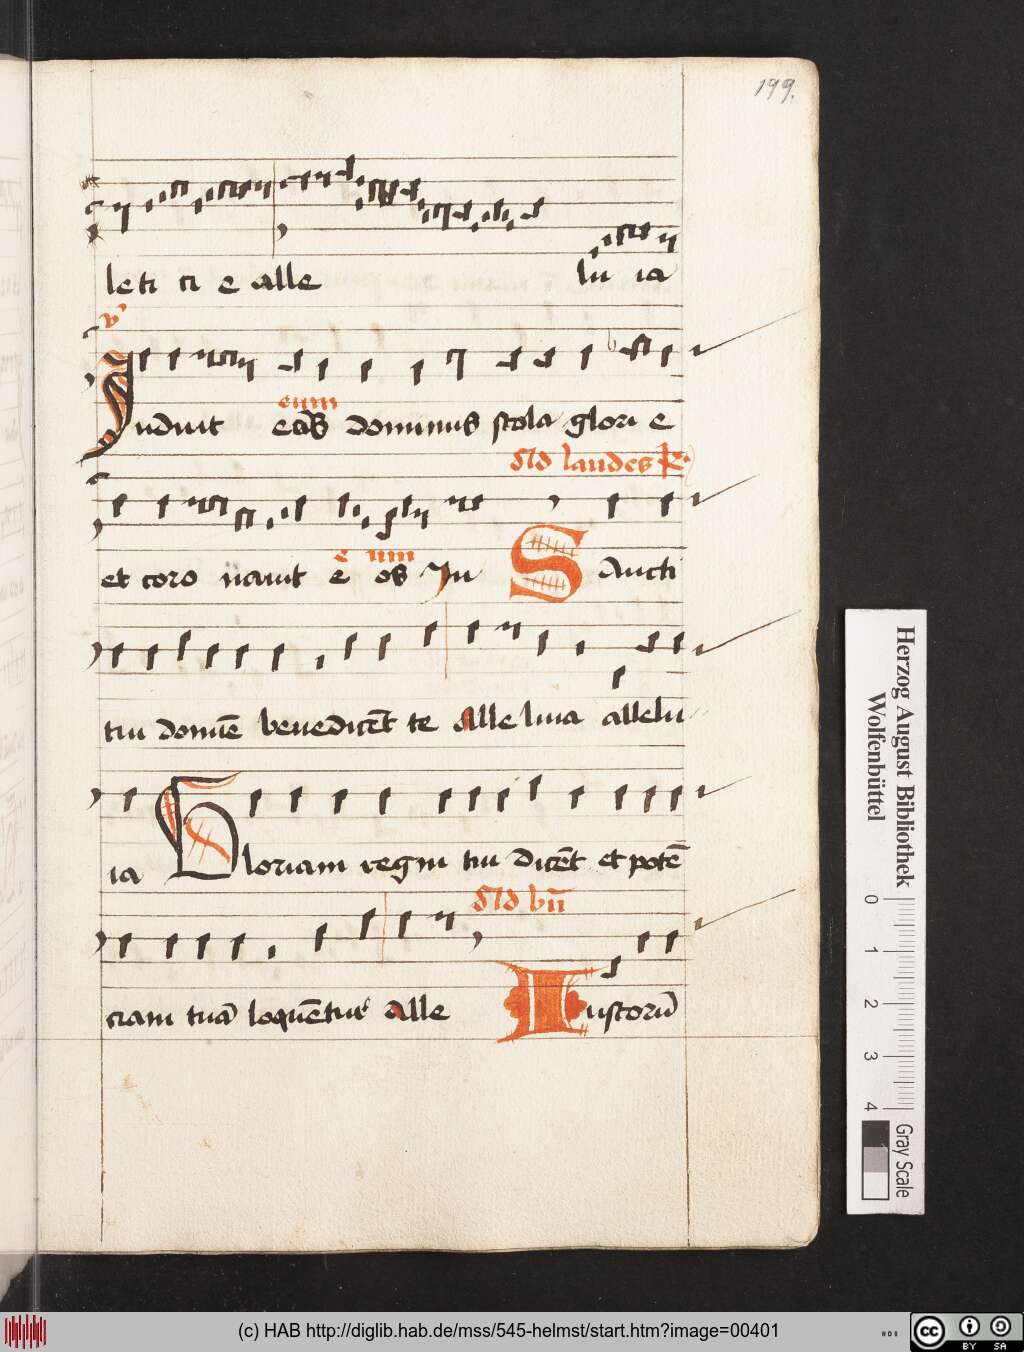 199.
leti ci e alle lu ia
V
Induit eos dominus stola glori e
eum
Ad laudes
et coro nauit e os In Sancti
e um
tui domīe benedicēt te Alleluia allelu
ia Gloriam regni tui dicēt et potē
Ad bn̄
ciam tuā loquēt Alle Iustorū
Herzog August Bibliothek
Wolfenbüttel
0 1 2 3 4
Gray Scale
(c) HAB http://diglib.hab.de/mss/545-helmst/start.htm?image=00401
cc BY SA